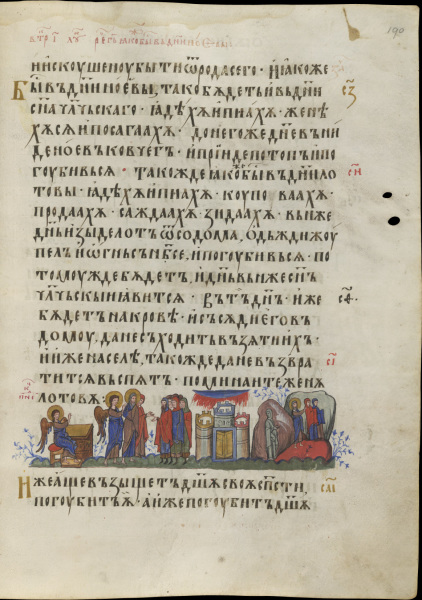 190
ниискоушеноубытиѿродасего · иꙗкоже
Бывъдн҃иноевы, такобѫдетьивьдн҃и
сн҃ачл҃чьскаго · ꙗдѣхѫипиахѫ · женѣ
хѫсѧипосагаахѫ · донегожедневьни
деноевъковчегъ · иприидепотопьипо
гоубивьсѧ · такождеꙗкобывьдн҃ило
товы · ꙗдѣхѫипиахѫ ·
продаахѫ · саждаахѫ · зидаахѫ · вьньже
дн҃ьизыделотъѿсодома, одъждижоу
пелъиогньсънб҃се, ипогоубивьсѧ · по
томоуждебѫдетъ, идн҃ьвьньжесн҃ъ
чл҃чьскыиꙗвитсѧ · вътъдн҃ь · иже
бѫдетьнакровѣ · исъсѫдиеговъ
домоу, данесъходитьвъзѧтиихъ ·
иижена селѣ, такождеданевъзвра
титсѧвьспѧть · поминаитеженѫ
лотовѫ ·
Ижеащевъзыщетъдш҃ѫсвоѫсп҃сти,
погоубитъѫ · аижепогоубитъдш҃ѫ